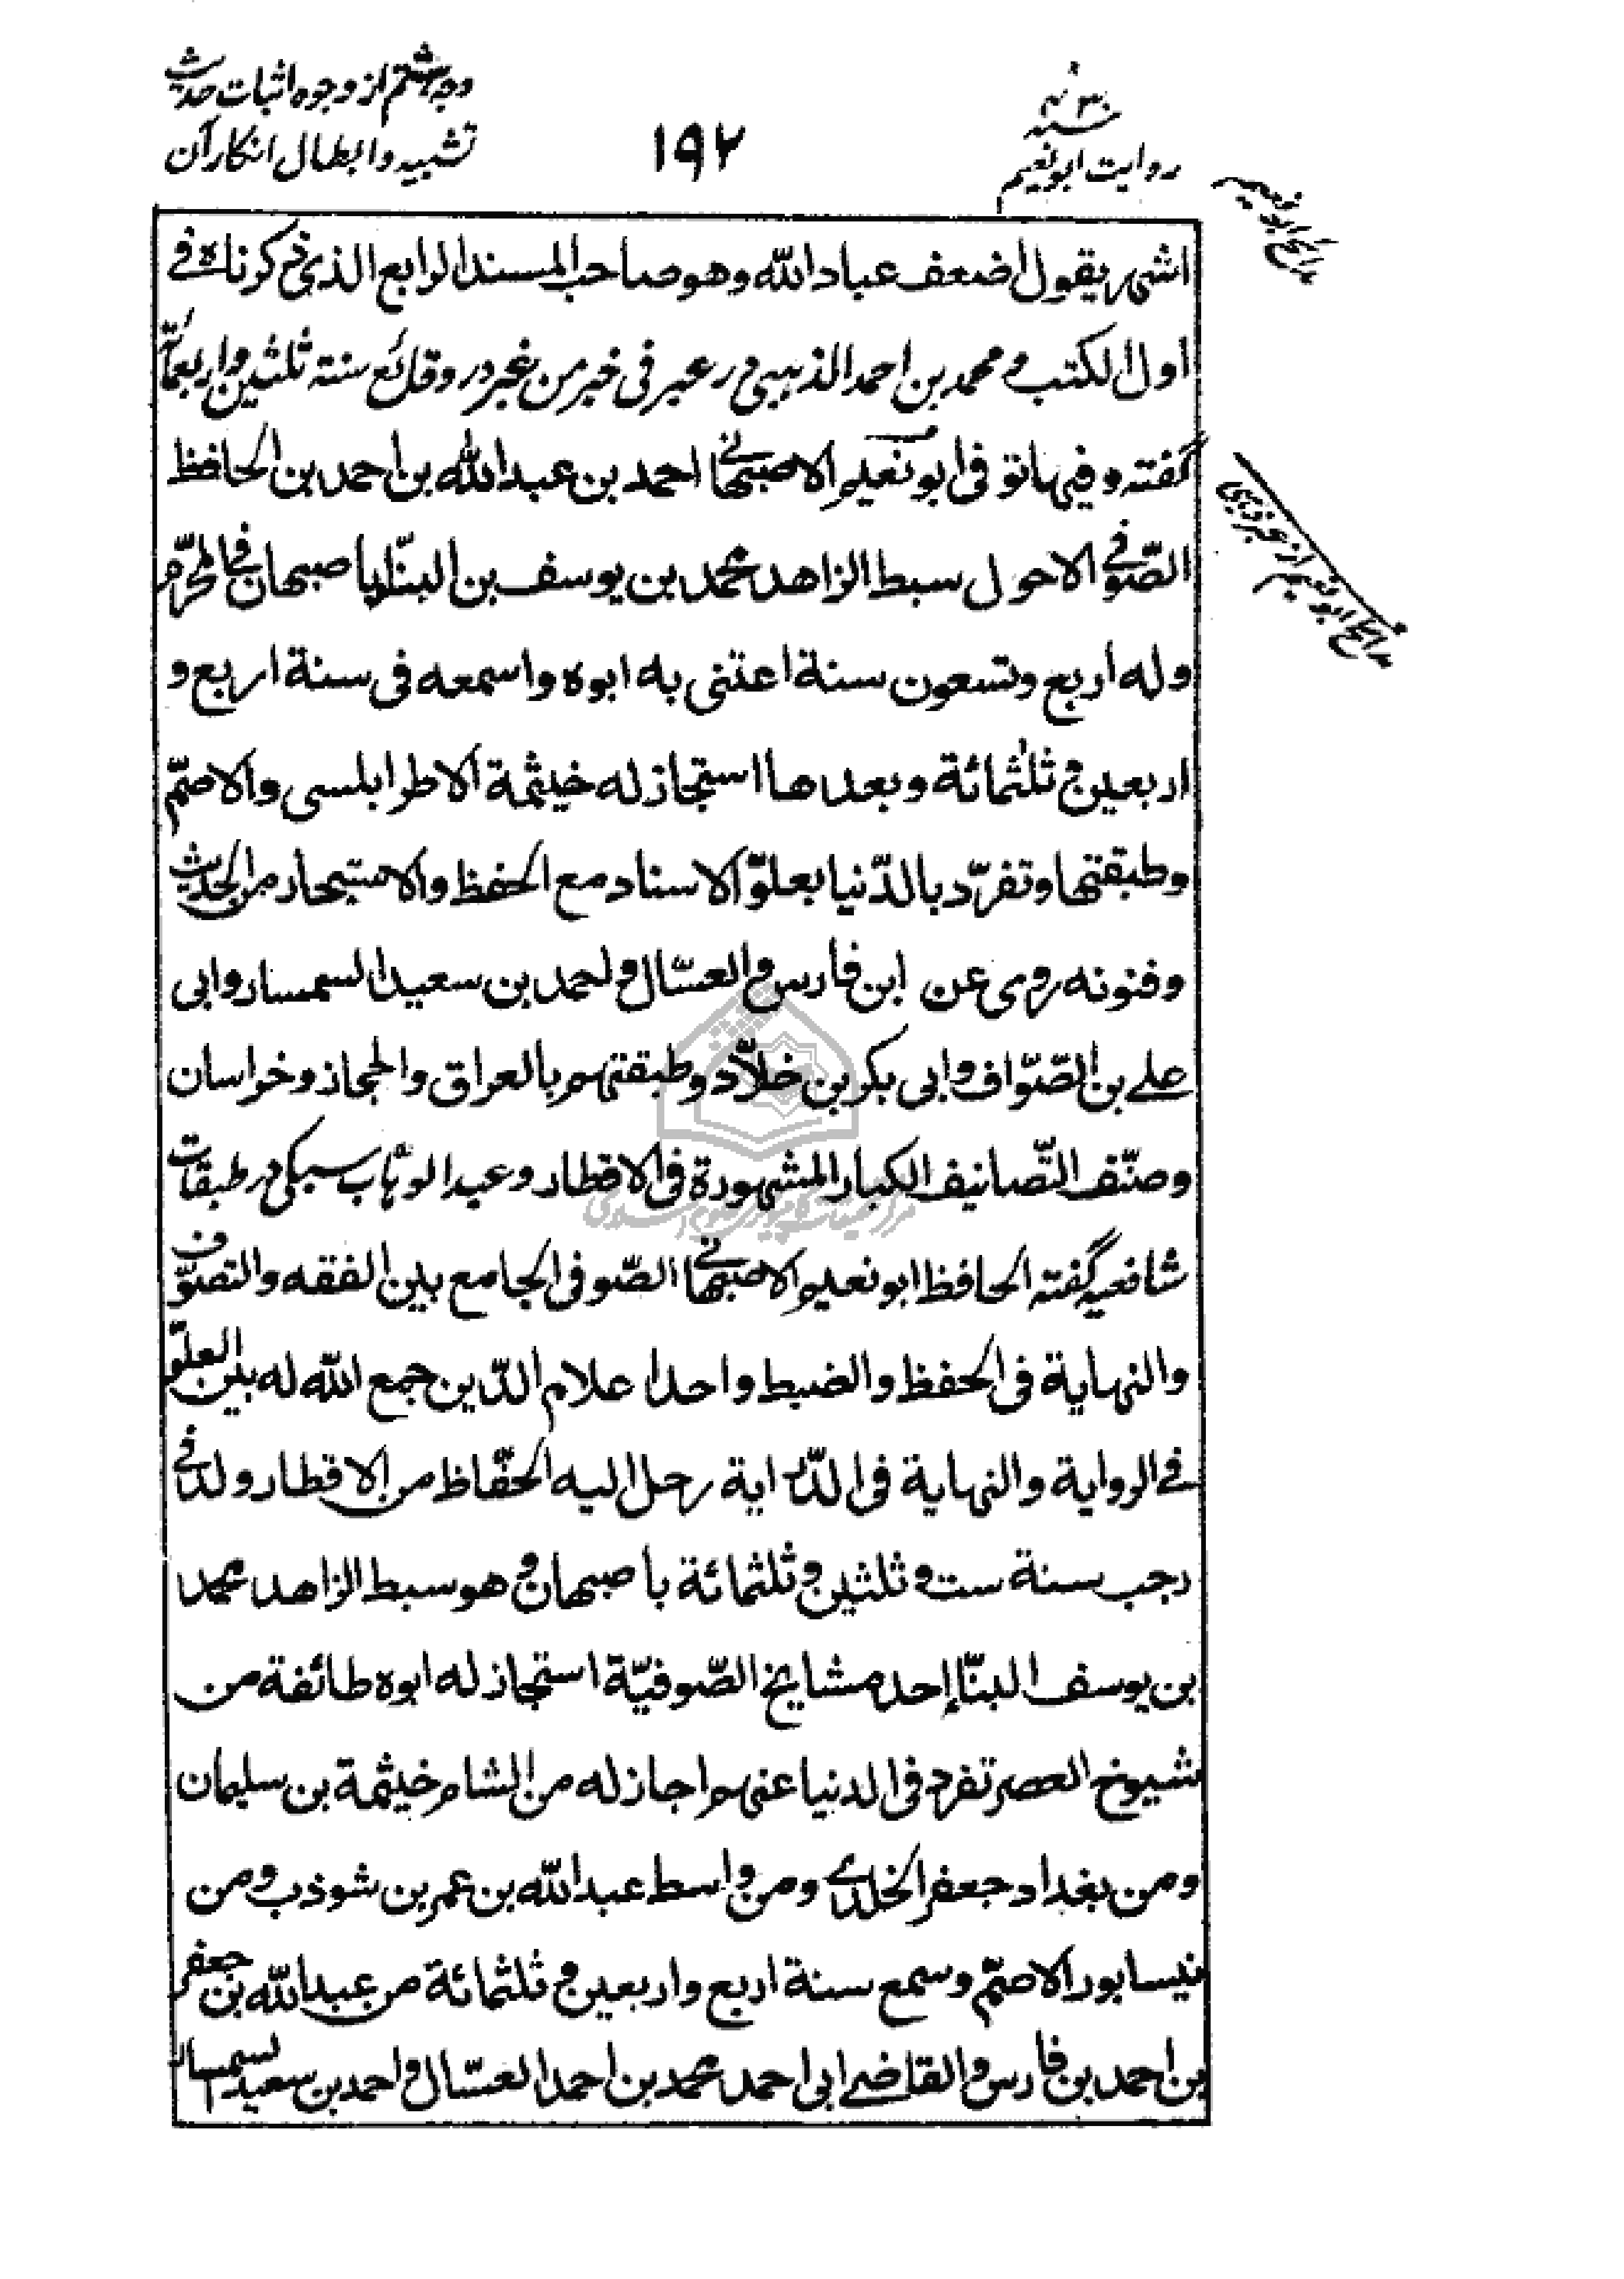 وجه هشتم از وجوه اثبات حدیث
تشبیه و ابطال انکار آن
۱۹۲
سنه ۴۳۰
روایت ابو نعیم
مدایح ابو نعیم
اشهر یقول اضعف عباد الله وهو صاحب المسند الرابع الذی ذکرناه فی
اول الکتب و محمد بن احمد الذهبی در عبر فی خبر من غبر در وقائع سنة ثلثین واربعمائة
گفته وفیها توفی ابو نعیم الاصبهانی احمد بن عبد الله بن احمد بن الحافظ
الصّوفی الاحول سبط الزاهد محمد بن یوسف بن البنّا باصبهان فی المحرّم
وله اربع وتسعون سنة اعتنی به ابوه واسمعه فی سنة اربع و
اربعین و ثلثمائة وبعدها استجاز له خیثمة الاطرابلسی والاصمّ
وطبقتها وتفرّد بالدّنیا بعلوّ الاسناد مع الحفظ والاستبحار من الحدیث
وفنونه روی عن ابن فارس والعسّال واحمد بن سعید السمسار وابی
علی بن الصّوّاف وابی بکر بن خلّاد وطبقتهم بالعراق والحجاز وخراسان
وصنّف التّصانیف الکبار المشهورة فی الاقطار و عبد الوهّاب سبکی در طبقات
شافعیه گفته الحافظ ابو نعیم الاصبهانی الصّوفی الجامع بین الفقه والتصوّف
والنهایة فی الحفظ والضبط واحد اعلام الدّین جمع الله له بین العلوّ
فی الروایة والنهایة فی الدّرایة رحل الیه الحفّاظ من الاقطار ولد فی
رجب سنة ست و ثلثین و ثلثمائة باصبهان و هو سبط الزاهد محمد
بن یوسف البنّا احد مشایخ الصّوفیّة استجاز له ابوه طائفة من
شیوخ العصر تفرد فی الدنیا عنهم اجاز له من الشام خیثمة بن سلیمان
ومن بغداد جعفر الخلدی ومن واسط عبد الله بن عمر بن شوذب ومن
نیسابور الاصمّ وسمع سنة اربع واربعین و ثلثمائة من عبد الله بن جعفر
بن احمد بن فارس والقاضی ابی احمد محمد بن احمد العسّال واحمد بن سعید السمسار
مدایح ابو نعیم از عبر ذهبی